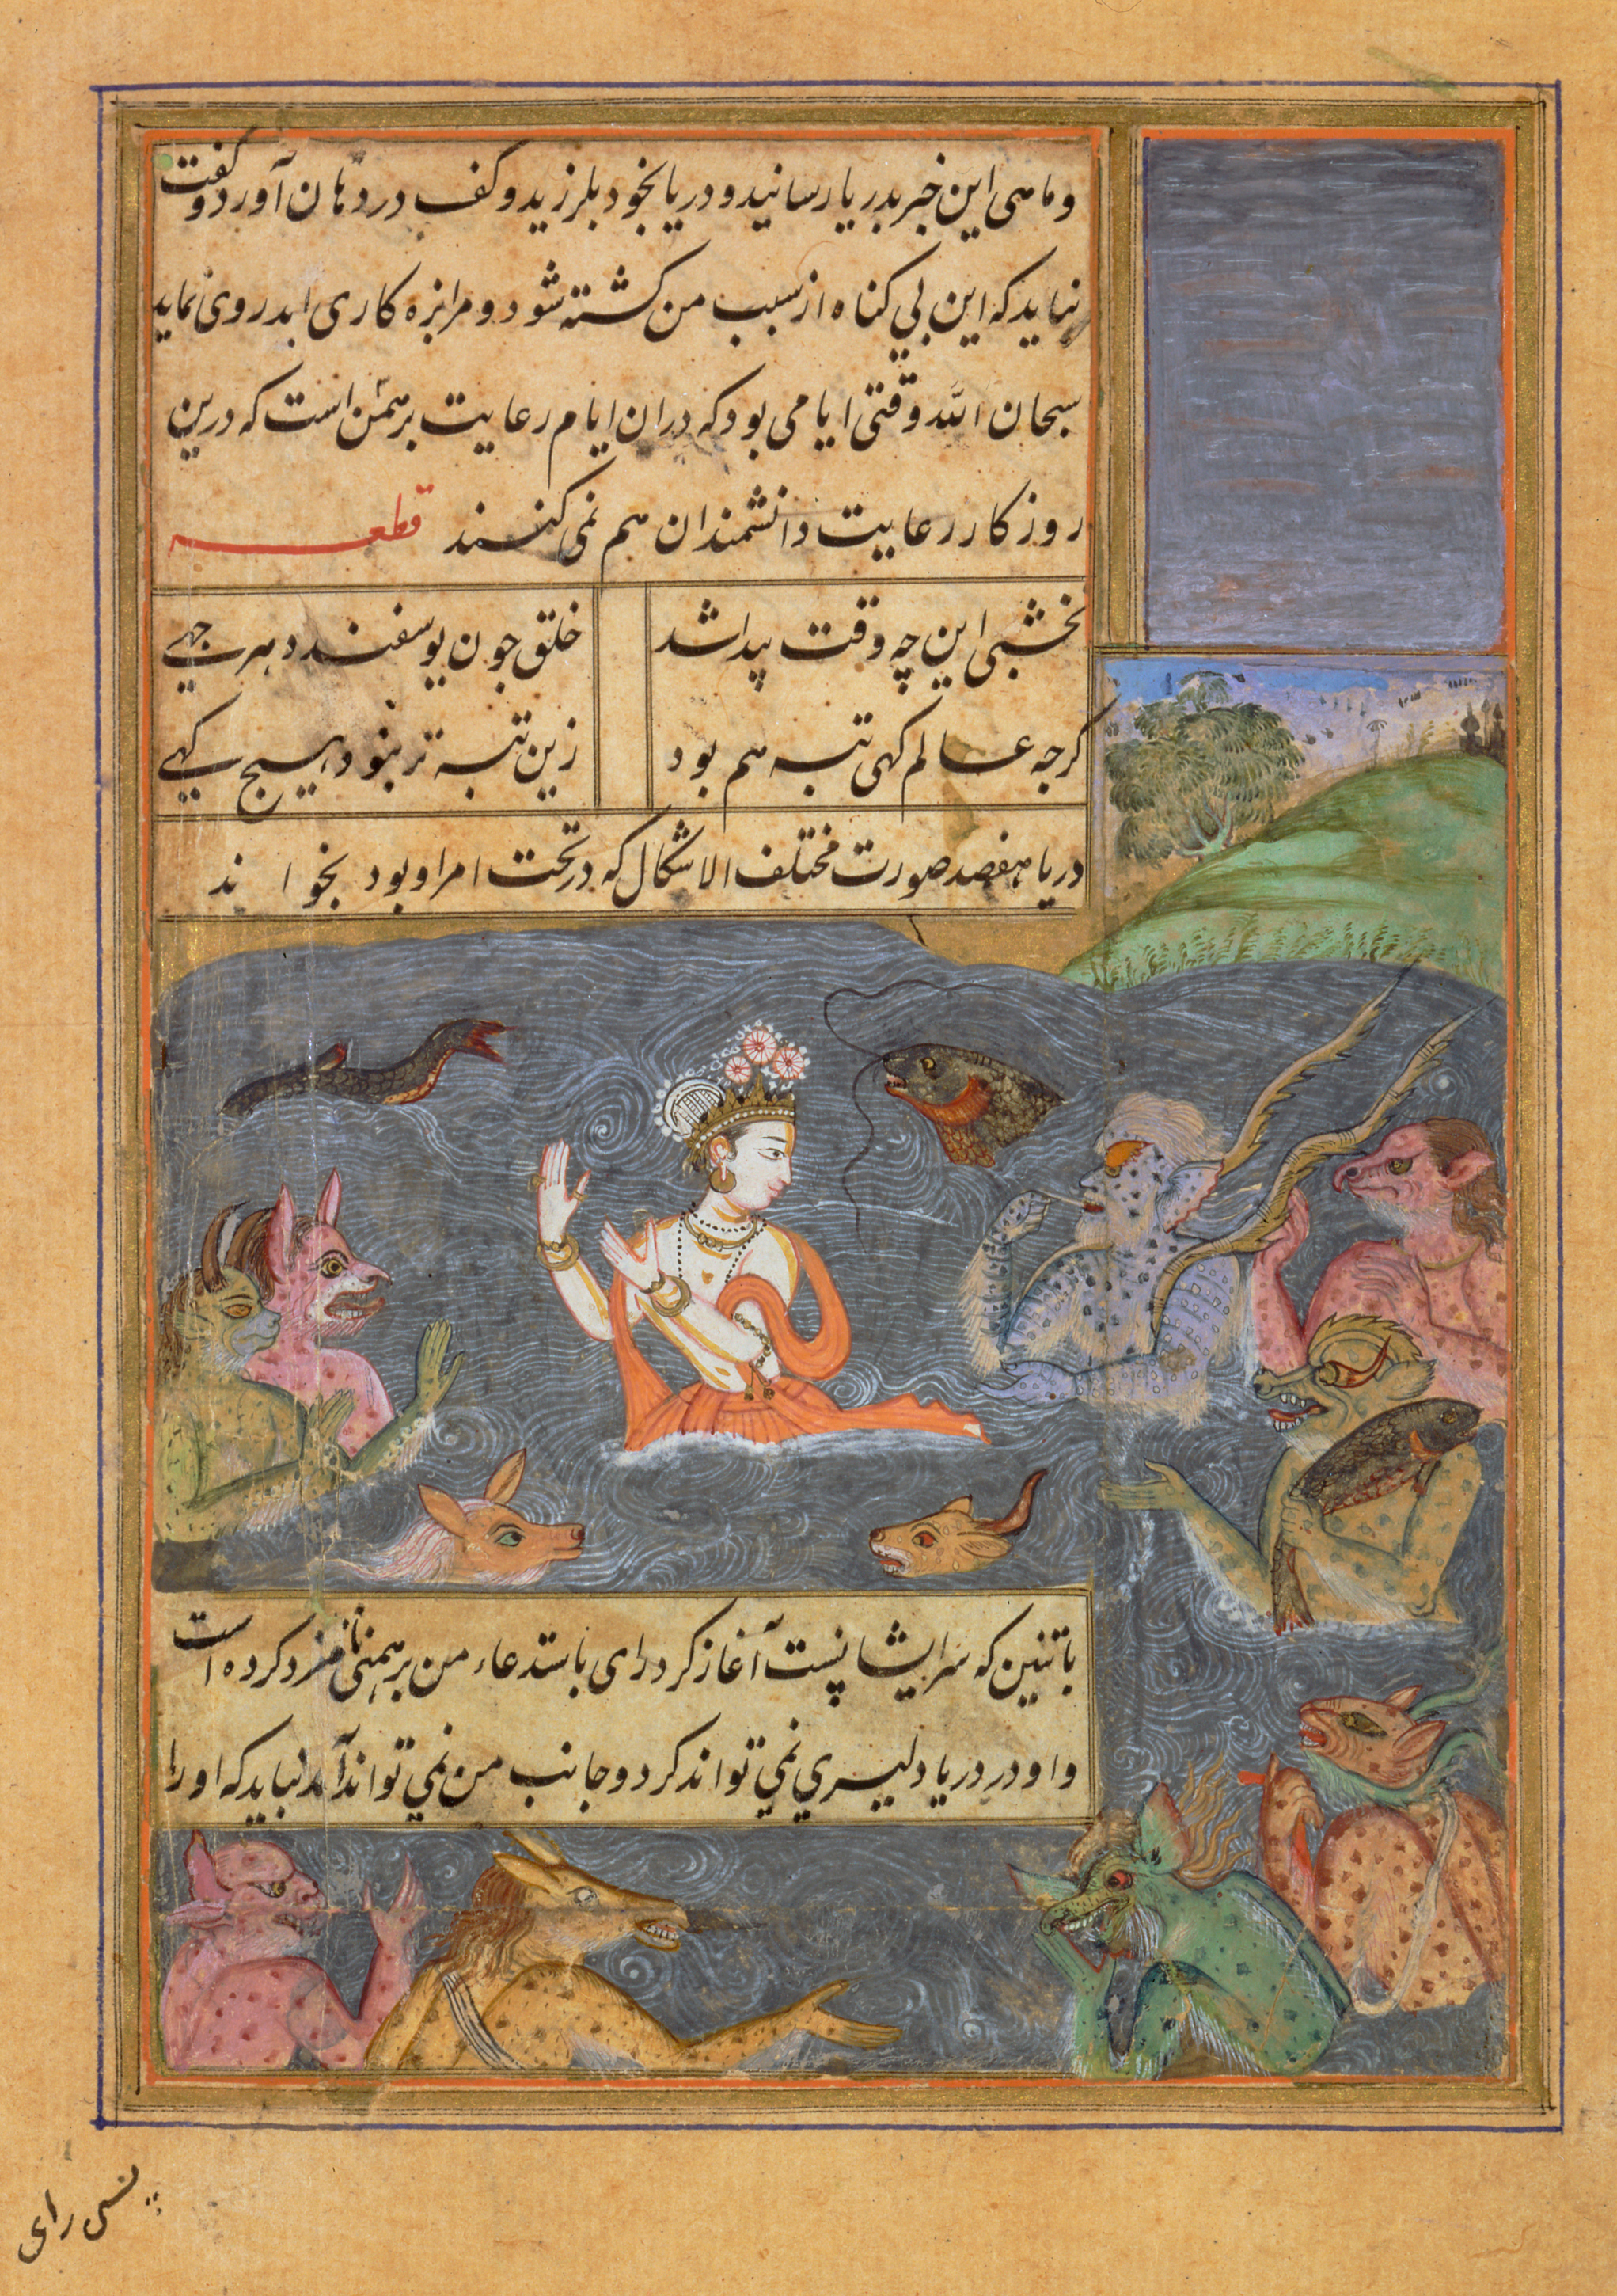 و ماهی این خبر بدریا رسانید و دریا بخود بلرزید و کف در دهان آورد و گفت
نباید که این بی کناه از سبب من کشته شود و مرا بزه کاری ابد روی نماید
سبحان الله وقتی ایامی بود که دران ایام رعایت برهمن است که درین
روزکار رعایت دانشمندان هم نمی کنند قطعه
نخشبی این چه وقت پیدا شد
خلق جون یوسفند و هر جهی
کرجه عالم کهی تبه هم بود
زین تبه تر نبود هیچ کهی
دریا هفصد صورت مختلف الاشکال که در تحت امر او بود بخواند
با تنین که سر ایشانست آغاز کرد رای باستدعاء من برهمنی نامزد کرده است
و او در دریا دلیری نمی تواند کرد و جانب من نمی تواند آمد نباید که او را
رای